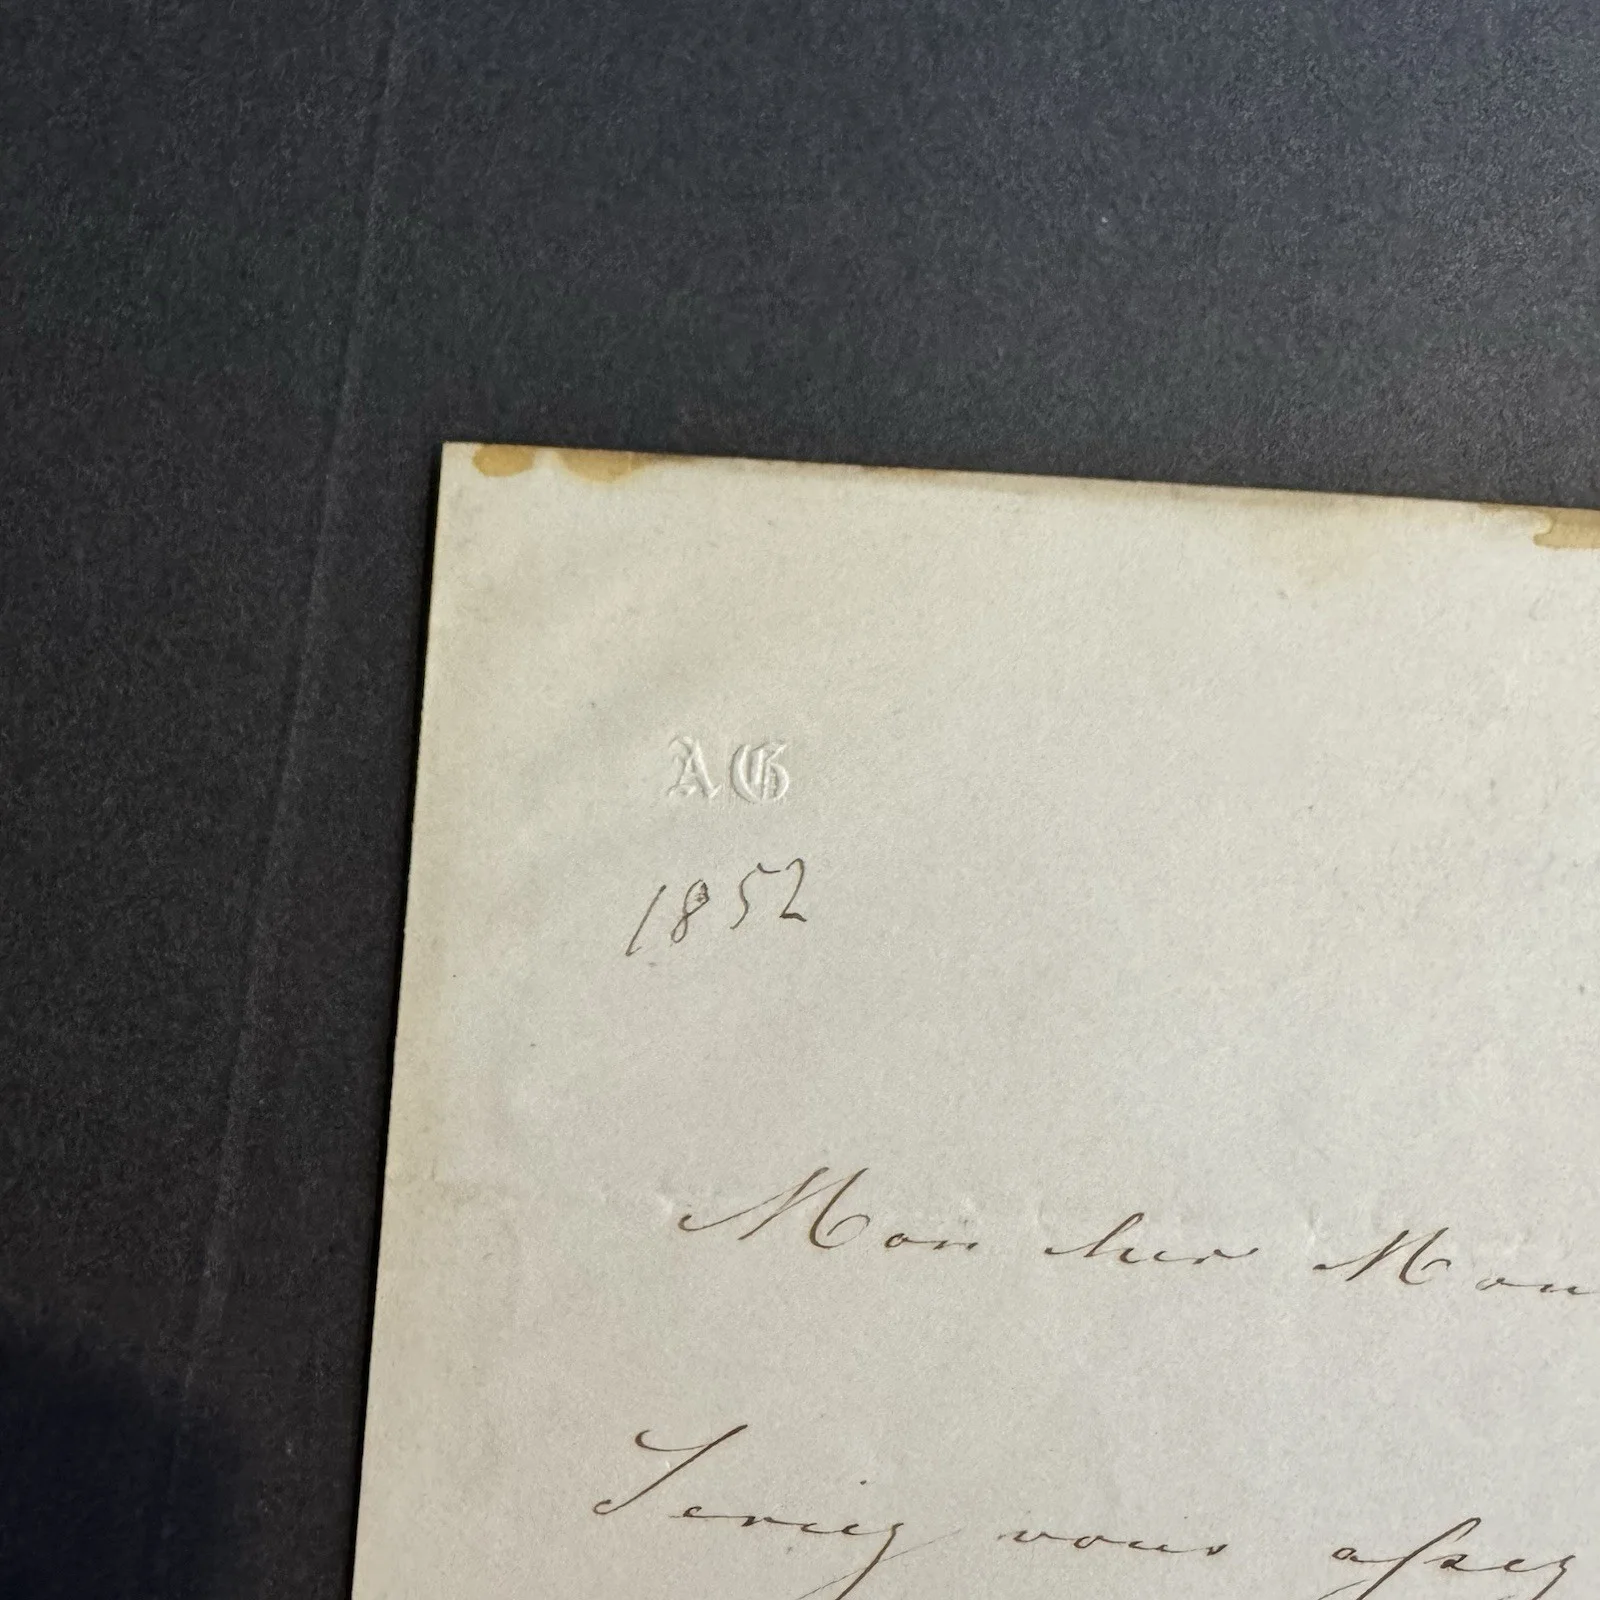 AG
1852
Mon cher Mon
Seriez vous assez